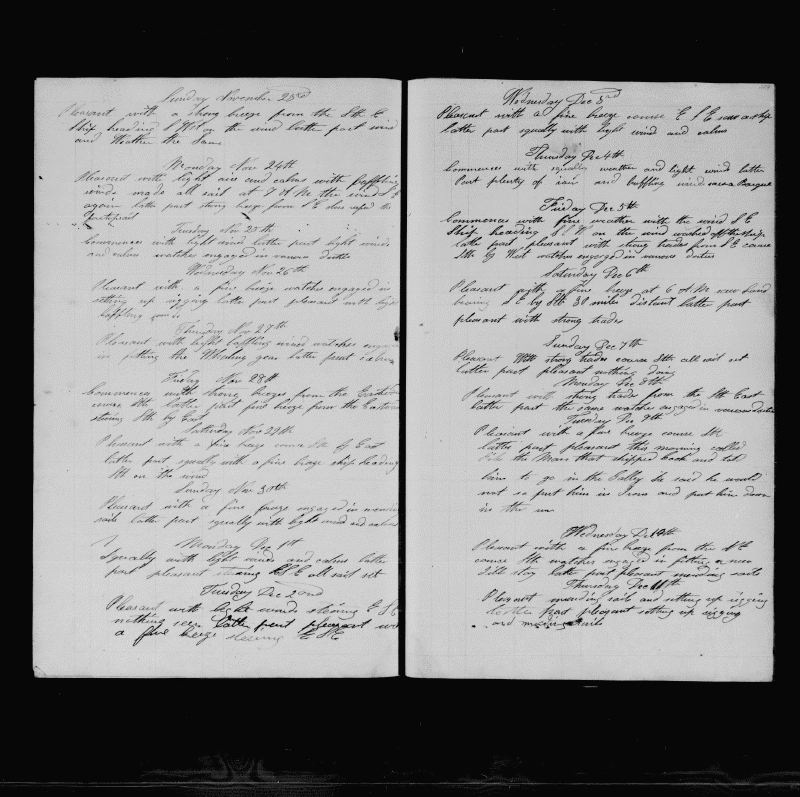 Sunday November 23rd
Pleasant with a strong breeze from the Sth E
Ship heading S West on the wind latter part wind
and Weather the Same
Monday Nov 24th
Pleasant with light airs and calms with baffling
winds made all sail at 7 A M the wind S E
again latter part strong breeze from S E close reefed the
foretopsail
Tuesday Nov 25th
Commences with light wind latter part light winds
and calms watches engaged in various duties
Wednesday Nov 26th
Pleasant with a fine breeze watches engaged in
setting up rigging latter part pleasant with light
baffling winds
Thursday Nov 27th
Pleasant with light baffling wind watches
in fitting the Whaling gear latter part calms
Friday Nov 28th
Commences with strong breeze from the Eastward
course Sth latter part fine breeze from the Eastward
steering Sth by East
Saturday Nov 29th
Pleasant with a fine breeze course Sth by East
latter part squally with a fine breeze ship heading
Sth on the wind
Sunday Nov 30th
Pleasant with a fine breeze engaged in mending
sails latter part squally with light wind and calms
Monday Dec 1st
Squally with light winds and calms latter
part pleasant steering E S E all sail set
Tuesday Dec 2nd
Pleasant with light winds steering E S E
nothing seen latter part pleasant with
a fine breeze steering E S E
Wednesday Dec 3rd
Pleasant with a fine breeze course E S E saw a ship
latter part squally with light wind and calms
Thursday Dec 4th
Commences with squally weather and light wind latter
Part plenty of rain and baffling wind saw a Barque
Friday Dec 5th
Commences with fine weather with the wind S E
Ship heading S S W on the wind washed off the ship
latter part pleasant with strong trades from S E course
Sth by West watches engaged in various duties
Saturday Dec 6th
Pleasant with a fine breeze at 6 A M saw land
bearing S E by Sth 30 miles distant latter part
pleasant with strong trades
Sunday Dec 7th
Pleasant With strong trades course Sth all sail set
latter part pleasant nothing doing
Monday Dec 8th
Pleasant with strong trades from the Sth East
latter part the same watches engaged in various duties
Tuesday Dec 9th
Pleasant with a fine breeze course Sth
latter part pleasant this morning called
the Man that shipped Cook and told
him to go in the Galley he said he would
not so put him in Irons and put him down
in the run
Wednesday Dec 10th
Pleasant with a fine breeze from the
course Sth watches engaged in fitting a new
stay latter part pleasant mending sails
Thursday Dec 11th
Pleasant mending sails and setting up rigging
latter part pleasant setting up rigging
and mending sails